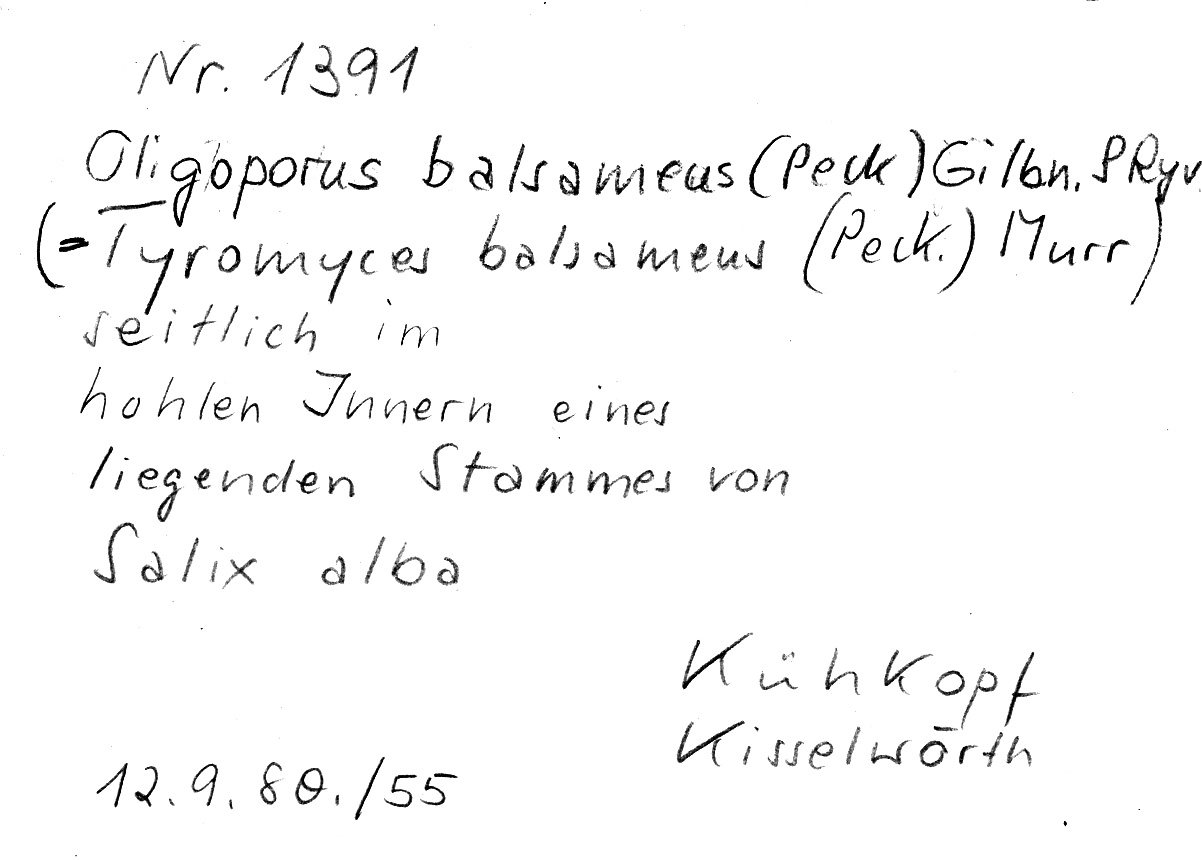 Nr. 1391
Oligoporus balsameus (Peck) Gilbn. & Ryv
(= Tyromyces balsameus (Peck.) Murr)
seitlich im
hohlen Innern eines
liegenden Stammes von
Salix alba
Kühkopf
Kisselwörth
12.9.80./55